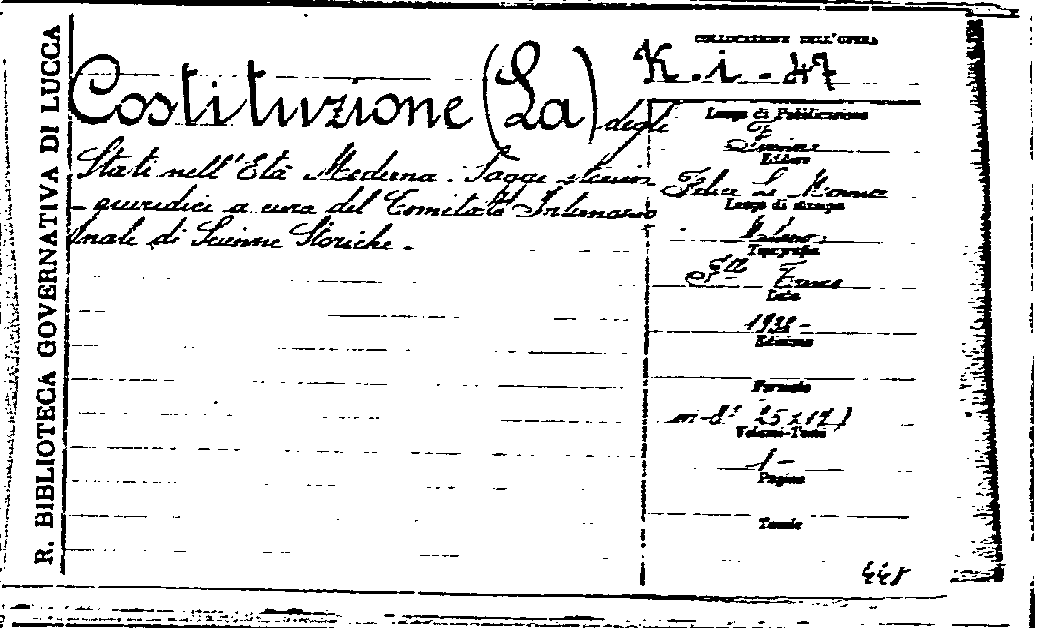 R. BIBLIOTECA GOVERNATIVA DI LUCCA
Costituzione (La) degli
Stati nell'Età Moderna. Saggi storici
- giuridici a cura del Comitato Internazio
nale di Scienze Storiche.
COLLOCAZIONE DELL'OPERA
K. i - 47
Luogo di Pubblicazione
Firenze
Editore
Felice Le Monnier
Luogo di stampa
Milano
Tipografia
F.lli
Data
1938 -
Edizione
Formato
in-8° 25 x 17)
Volume-Tomo
1 -
Pagine
Tavole
448